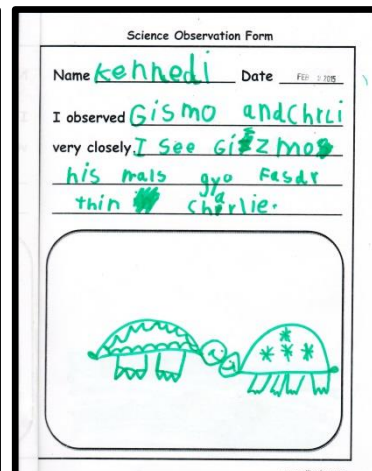 Science Observation Form
Name Kennedi Date FEB 2015
I observed Gismo andChrli
very closely. I see Gizmo
his nals gyo Fasdr
thin Charlie.